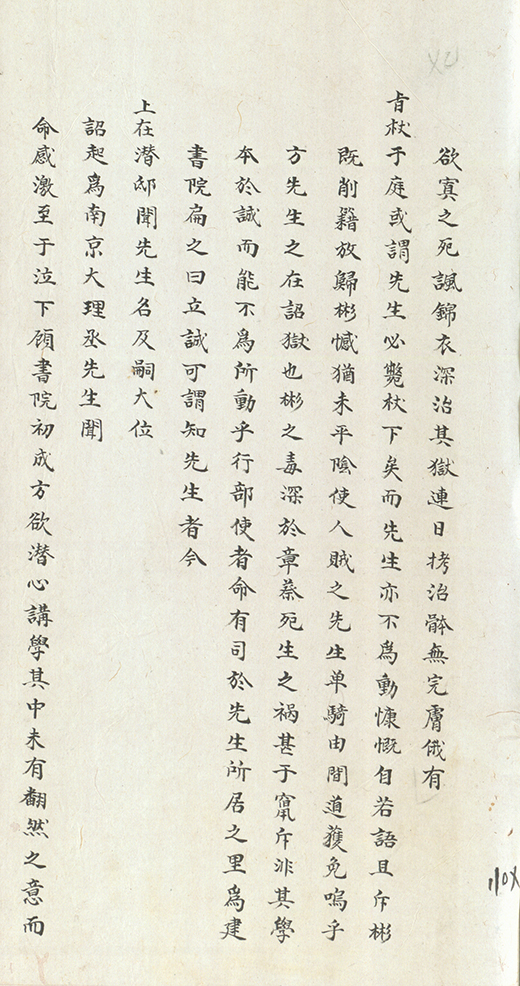 欲寘之死諷錦衣深治其獄連日拷治骵無完膚俄有
㫖杖于庭或謂先生必斃杖下矣而先生亦不為動慷慨自若語且斥彬
既削籍放歸彬憾猶未平陰使人賊之先生单騎由間道獲免嗚乎
方先生之在詔獄也彬之毒深於章蔡死生之祸甚于竄斥非其學
本於誠而能不為所動乎行部使者命有司於先生所居之里為建
書院扁之曰立誠可謂知先生者今
上在潜邸聞先生名及嗣大位
詔起為南京大理丞先生聞
命感激至于泣下顧書院初成方欲潜心講學其中未有翻然之意而